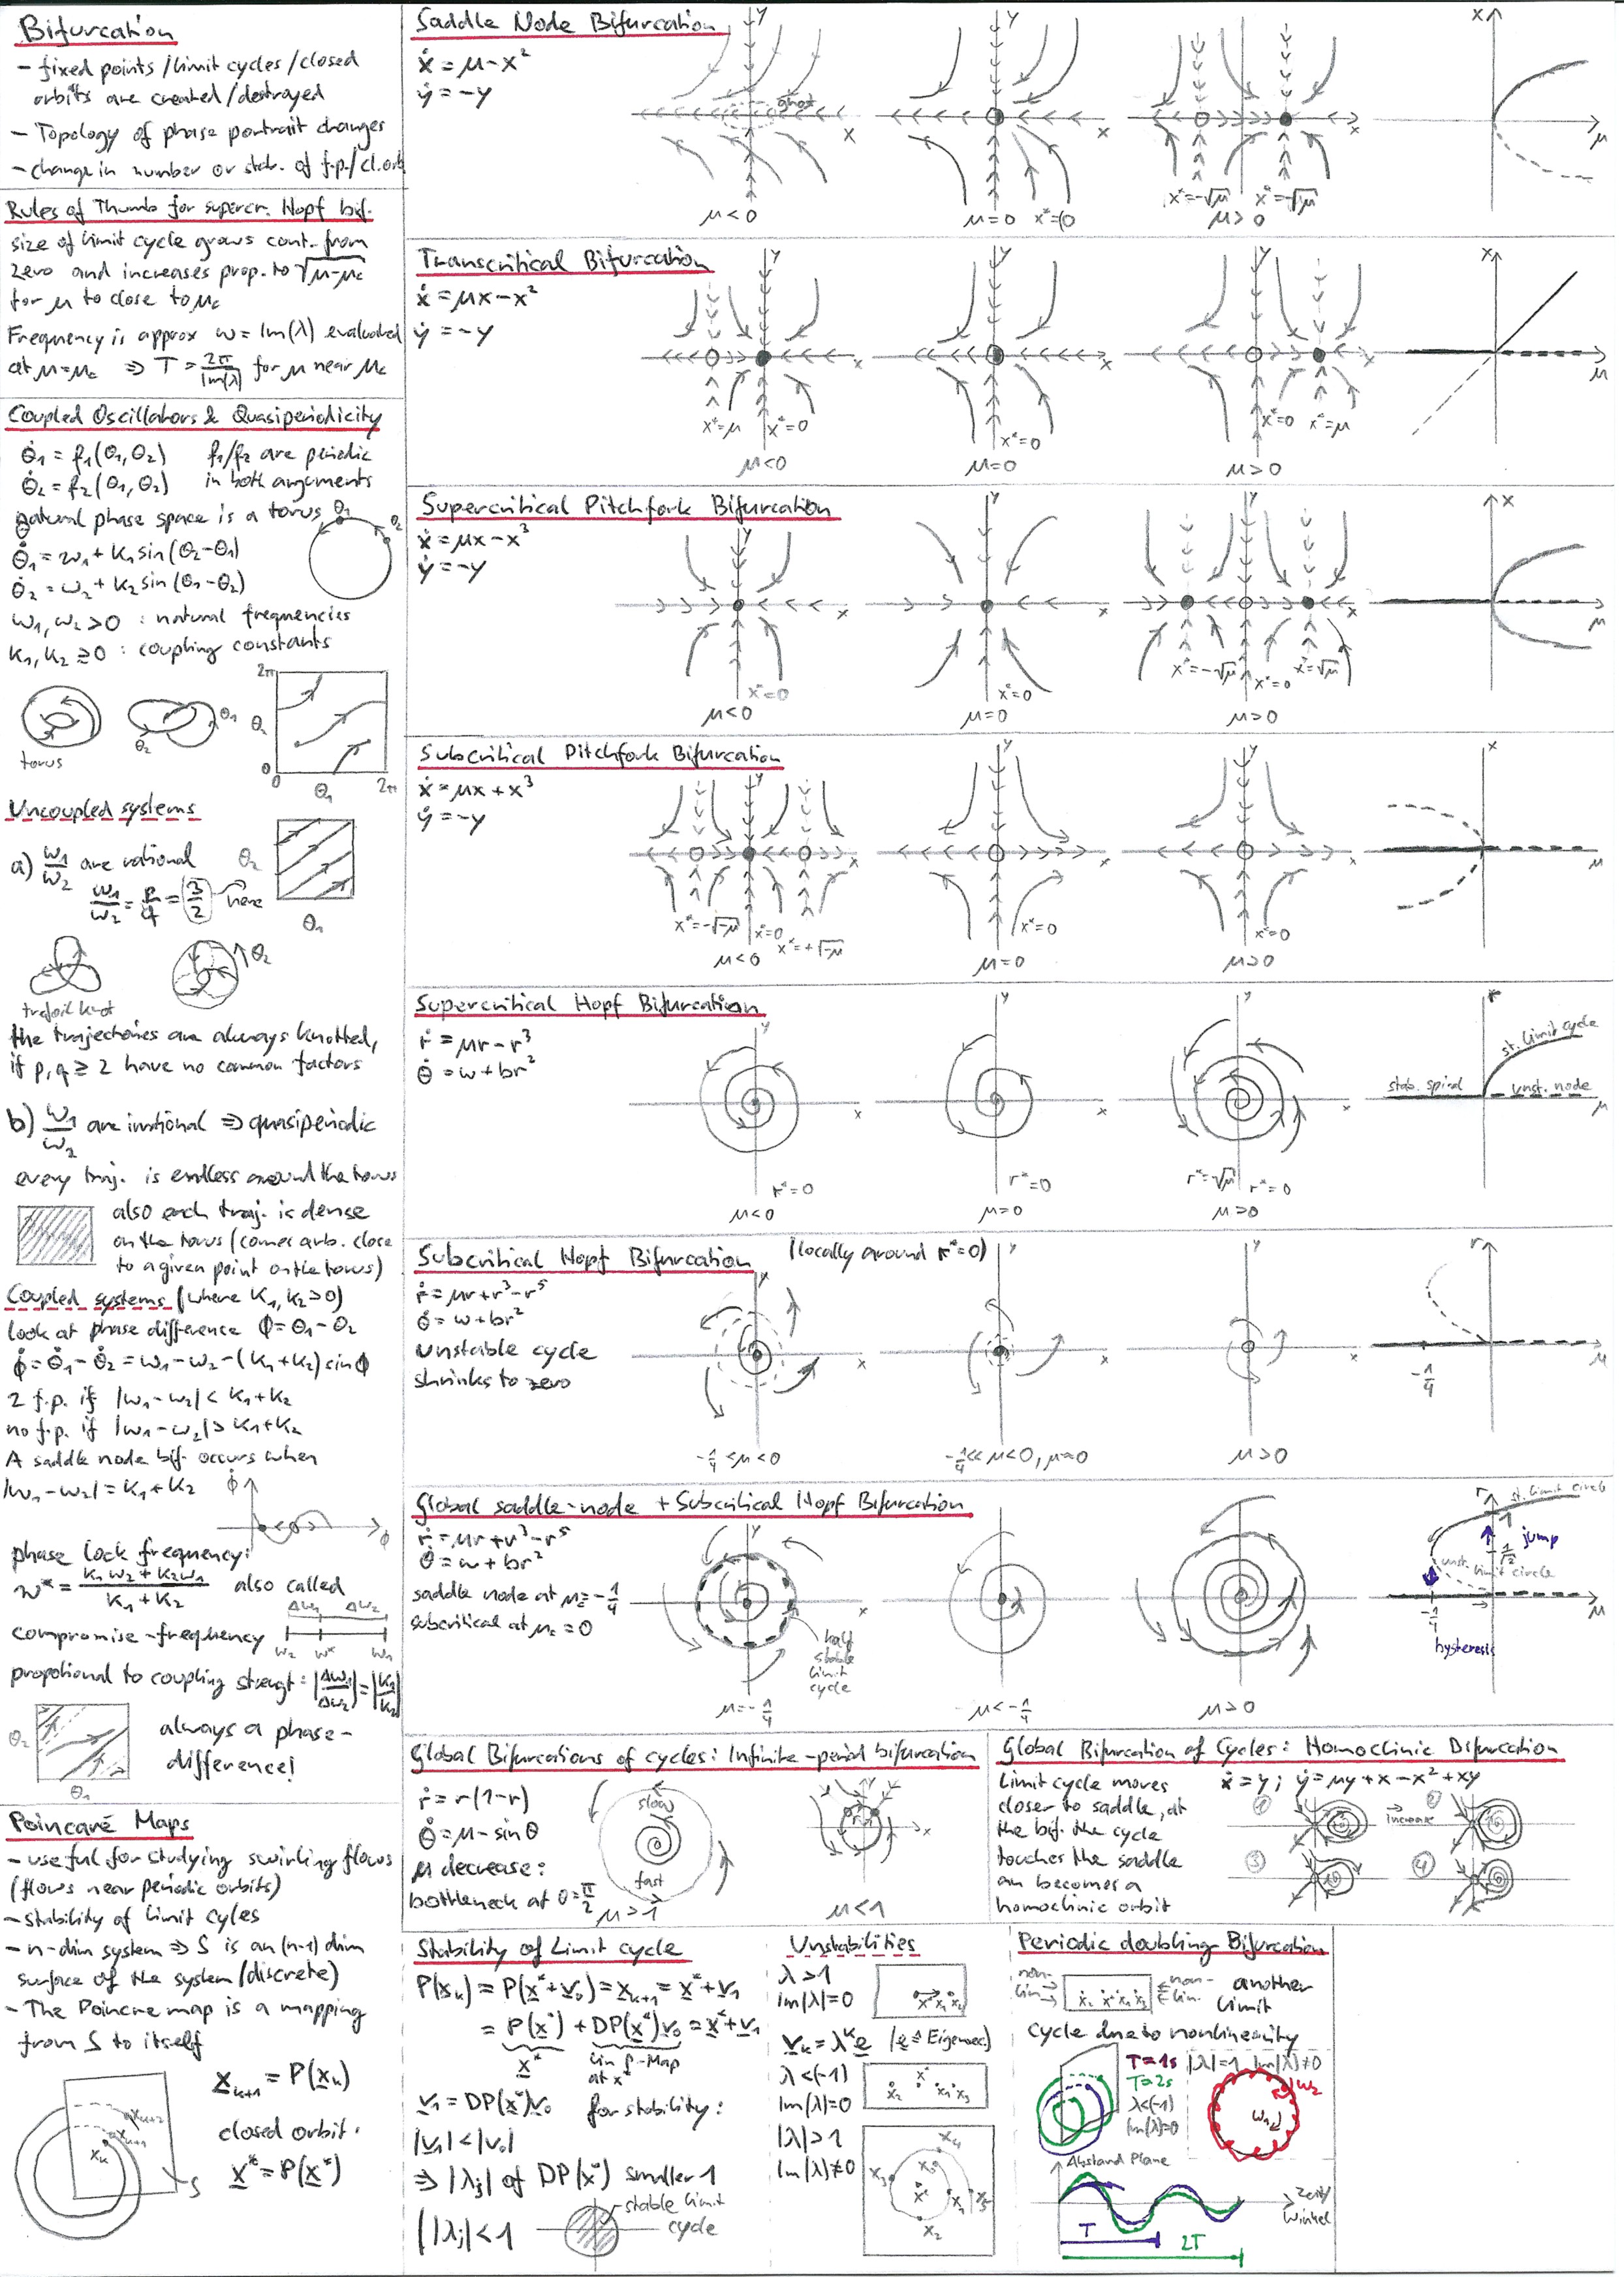 Bifurcation
- fixed points/limit cycles/closed
orbits are created/destroyed
- Topology of phase portrait changes
- change in number or stab. of f.p./cl.orb
Rules of Thumb for supercr. Hopf bif.
size of limit cycle grows cont. from
zero and increases prop. to √μ-μc
for μ to close to μc
Frequency is approx ω = Im(λ) evaluated
at μ=μc ⇒ T = 2π/Im(λ) for μ near μc
Coupled Oscillators & Quasiperiodicity
θ̇1 = f1(θ1,θ2) f1/f2 are periodic
θ̇2 = f2(θ1,θ2) in both arguments
natural phase space is a torus θ1 θ2
θ̇1 = ω1 + K1 sin(θ2-θ1)
θ̇2 = ω2 + K2 sin(θ1-θ2)
ω1, ω2 > 0 : natural frequencies
K1, K2 ≥ 0 : coupling constants
2π
θ2
0
0 θ1 2π
θ2 θ1
torus
Uncoupled systems
a) ω1/ω2 are rational
ω1/ω2 = p/q = (3/2) here
θ2
θ1
θ2
trefoil knot
the trajectories are always knotted,
if p,q ≥ 2 have no common factors
b) ω1/ω2 are irrational ⇒ quasiperiodic
every traj. is endless around the torus
also each traj. is dense
on the torus (comes arb. close
to a given point on the torus)
Coupled systems (where K1, K2 > 0)
look at phase difference Φ = θ1 - θ2
Φ̇ = θ̇1 - θ̇2 = ω1 - ω2 - (K1+K2) sinΦ
2 f.p. if |ω1-ω2| < K1+K2
no f.p. if |ω1-ω2| > K1+K2
A saddle node bif. occurs when
|ω1-ω2| = K1+K2
Φ̇
Φ
phase lock frequency:
ω* = (K1ω2 + K2ω1)/(K1+K2) also called
compromise-frequency
Δω1 Δω2
ω2 ω* ω1
propotional to coupling strengt: |Δω1/Δω2| = |K1/K2|
θ2
θ1
always a phase-
difference!
Poincaré Maps
- useful for studying swirling flows
(flows near periodic orbits)
- stability of limit cyles
- n-dim system ⇒ S is an (n-1) dim
surface of the system (discrete)
- The Poincre map is a mapping
from S to itself
xk+1 = P(xk)
closed orbit:
x* = P(x*)
xk+2
xk+1
xk
S
Saddle Node Bifurcation
ẋ = μ - x²
ẏ = -y
y
ghost
x
μ<0
y
x
μ=0 x*=0
x
x*=-√μ x*=√μ
μ>0
x
μ
Transcritical Bifurcation
ẋ = μx - x²
ẏ = -y
y
x
x*=μ x*=0
μ<0
y
x
x*=0
μ=0
y
x
x*=0 x*=μ
μ>0
x
μ
Supercritical Pitchfork Bifurcation
ẋ = μx - x³
ẏ = -y
y
x
x*=0
μ<0
y
x
x*=0
μ=0
y
x
x*=-√μ x*=0 x*=√μ
μ>0
x
μ
Subcritical Pitchfork Bifurcation
ẋ = μx + x³
ẏ = -y
y
x
x*=-√-μ x*=0 x*=+√-μ
μ<0
y
x
x*=0
μ=0
y
x
x*=0
μ>0
x
μ
Supercritical Hopf Bifurcation
ṙ = μr - r³
θ̇ = ω + br²
y
x
r*=0
μ<0
y
x
r*=0
μ=0
y
x
r*=√μ r*=0
μ>0
r
st. limit cycle
stab. spiral unst. node
μ
Subcritical Hopf Bifurcation (locally around r*=0)
ṙ = μr + r³ - r⁵
θ̇ = ω + br²
unstable cycle
shrinks to zero
y
x
-1/4 < μ < 0
y
x
-1/4 << μ < 0, μ≈0
y
x
μ>0
r
-1/4
μ
Global saddle-node + Subcritical Hopf Bifurcation
ṙ = μr + r³ - r⁵
θ̇ = ω + br²
saddle node at μ = -1/4
subcritical at μc = 0
y
half
stable
limit
cycle
μ = -1/4
μ < -1/4
μ>0
r
st. limit circle
1
jump
1/√2
unst. limit circle
-1/4
μ
hysteresis
Global Bifurcations of cycles: Infinite-period bifurcation
ṙ = r(1-r)
θ̇ = μ - sinθ
μ decrease:
bottleneck at θ = π/2
slow
fast
μ>1
y
x
μ<1
Global Bifurcation of Cycles: Homoclinic Bifurcation
Limit cycle moves
closer to saddle, at
the bif. the cycle
touches the saddle
an becomes a
homoclinic orbit
ẋ = y; ẏ = μy + x - x² + xy
① increase ②
③ ④
Stability of Limit cycle
P(xk) = P(x*+v0) = xk+1 = x*+v1
= P(x*) + DP(x*)v0 = x*+v1
x* lin P-Map
at x*
v1 = DP(x*)v0 for stability:
|v1| < |v0|
⇒ |λj| of DP(x*) smaller 1
|λj| < 1
stable limit
cycle
Unstabilities
λ > 1
Im(λ)=0
x* x1 x2
vk = λᵏe (e ≙ Eigenvec.)
λ < (-1)
Im(λ)=0
x2 x* x1 x3
|λ| > 1
Im(λ)≠0
x4
x3
x*
x1
x5
x2
Periodic doubling Bifurcation
non-
lin
x2 x* x1 x3
non-
lin.
another
limit
cycle due to nonlinearity
T=1s
T=2s
λ<(-1)
Im(λ)=0
|λ|=1 Im(λ)≠0
ω2
ω1
Abstand Plane
Zeit/
Winkel
T
2T